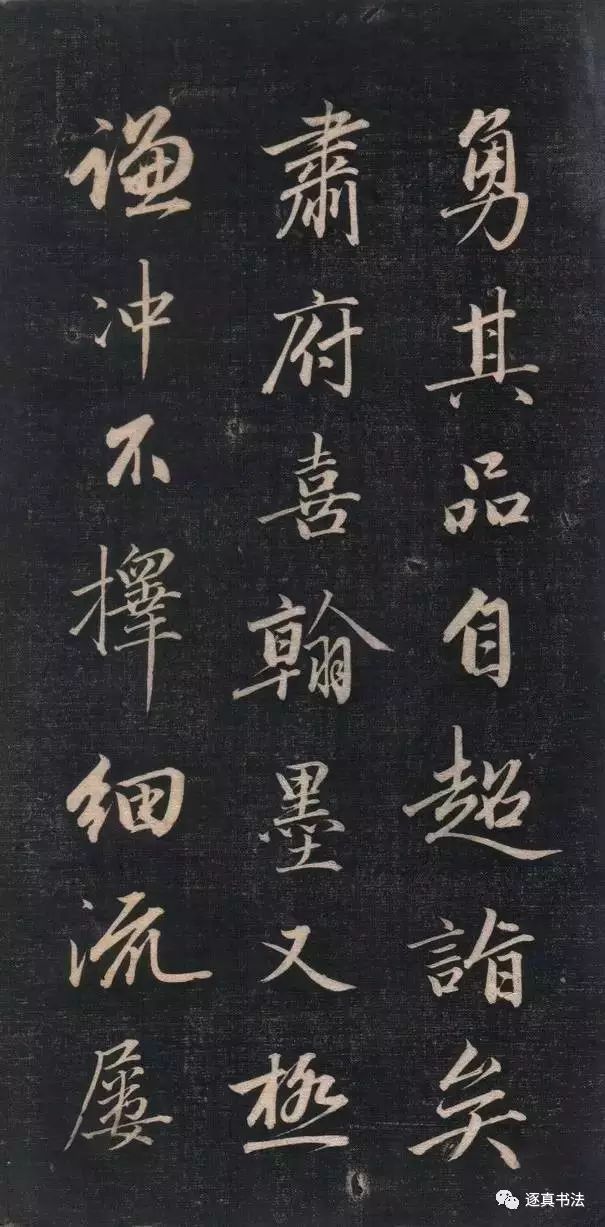 勇其品自超詣矣
肅府喜翰墨又極
謙冲不擇細流屢
逐真书法